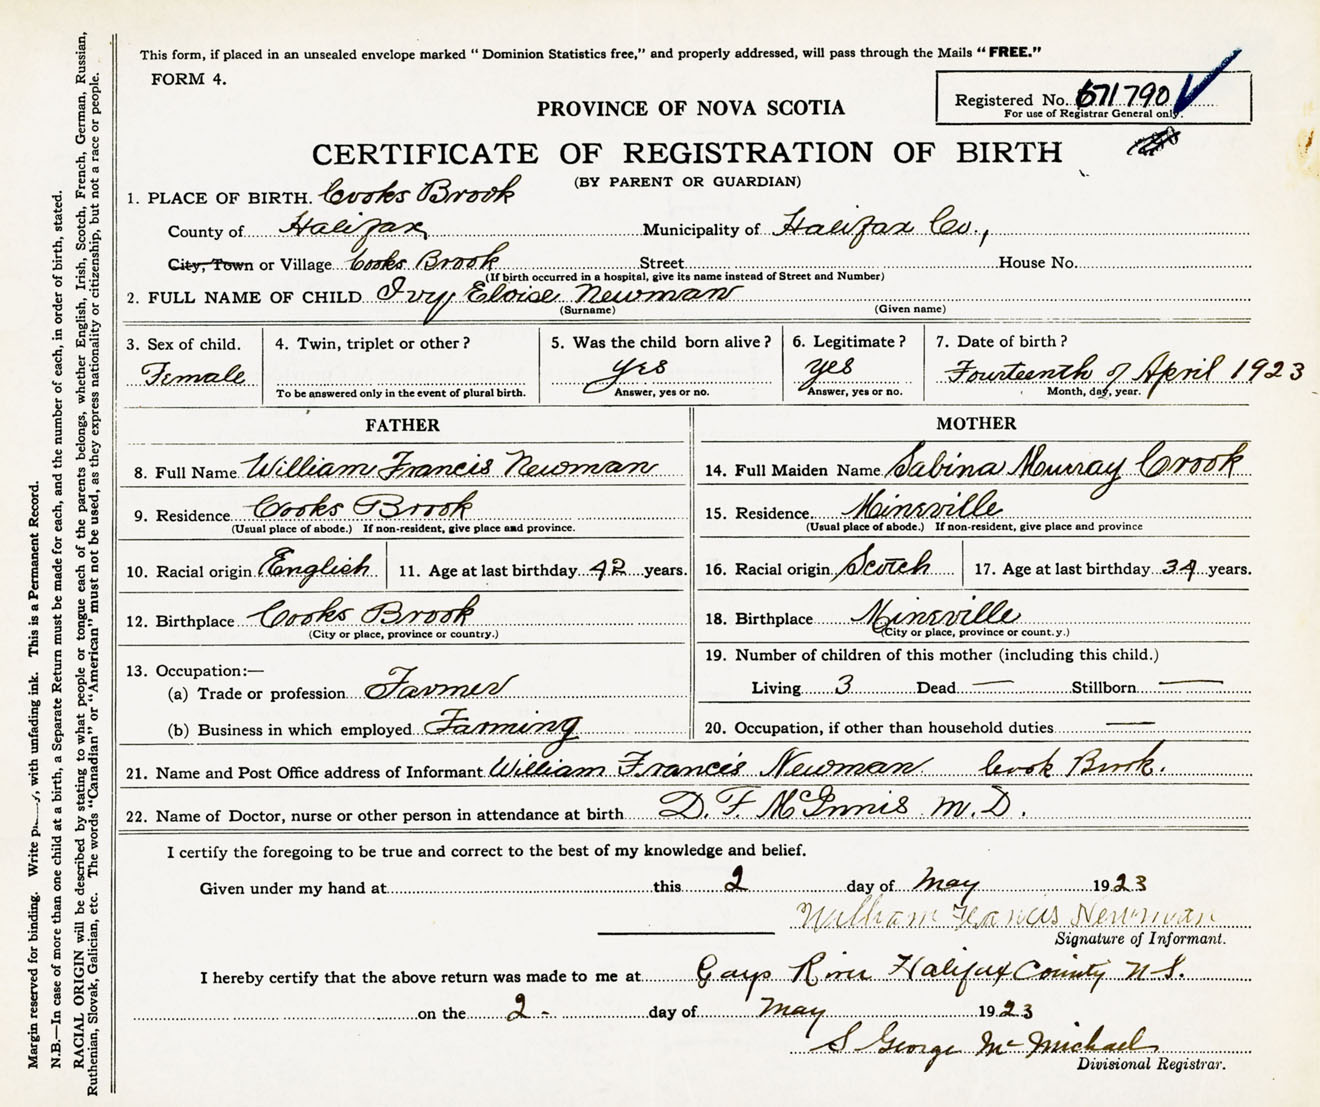 This form, if placed in an unsealed envelope marked "Dominion Statistics free," and properly addressed, will pass through the Mails "FREE."
FORM 4.
Registered No. 671790
For use of Registrar General only.
PROVINCE OF NOVA SCOTIA
CERTIFICATE OF REGISTRATION OF BIRTH
(BY PARENT OR GUARDIAN)
1. PLACE OF BIRTH. Cooks Brook
County of Halifax Municipality of Halifax Co.,
City, Town or Village Cooks Brook Street House No.
(If birth occurred in a hospital, give its name instead of Street and Number)
2. FULL NAME OF CHILD Ivy Eloise Newman
(Surname) (Given name)
3. Sex of child. Female
4. Twin, triplet or other?
To be answered only in the event of plural birth.
5. Was the child born alive? yes
Answer, yes or no.
6. Legitimate? yes
Answer, yes or no.
7. Date of birth? Fourteenth of April 1923
Month, day, year.
FATHER
8. Full Name William Francis Newman
9. Residence Cooks Brook
(Usual place of abode.) If non-resident, give place and province.
10. Racial origin English 11. Age at last birthday 42 years.
12. Birthplace Cooks Brook
(City or place, province or country.)
13. Occupation:—
(a) Trade or profession Farmer
(b) Business in which employed Farming
MOTHER
14. Full Maiden Name Sabina Murray Crook
15. Residence Mineville
(Usual place of abode.) If non-resident, give place and province
16. Racial origin Scotch 17. Age at last birthday 34 years.
18. Birthplace Mineville
(City or place, province or count.y.)
19. Number of children of this mother (including this child.)
Living 3 Dead — Stillborn —
20. Occupation, if other than household duties —
21. Name and Post Office address of Informant William Francis Newman Cook Brook.
22. Name of Doctor, nurse or other person in attendance at birth D. F. McInnis M.D.
I certify the foregoing to be true and correct to the best of my knowledge and belief.
Given under my hand at this 2 day of May 1923
William Francis Newman
Signature of Informant.
I hereby certify that the above return was made to me at Gays River Halifax County N S.
on the 2- day of May 1923
S George McMichael
Divisional Registrar.
Margin reserved for binding. Write with unfading ink. This is a Permanent Record.
N.B.—In case of more than one child at a birth, a Separate Return must be made for each, and the number of each, in order of birth, stated.
RACIAL ORIGIN will be described by stating to what people or tongue each of the parents belongs, whether English, Irish, Scotch, French, German, Russian,
Ruthenian, Slovak, Galician, etc. The words "Canadian" or "American" must not be used, as they express nationality or citizenship, but not a race or people.